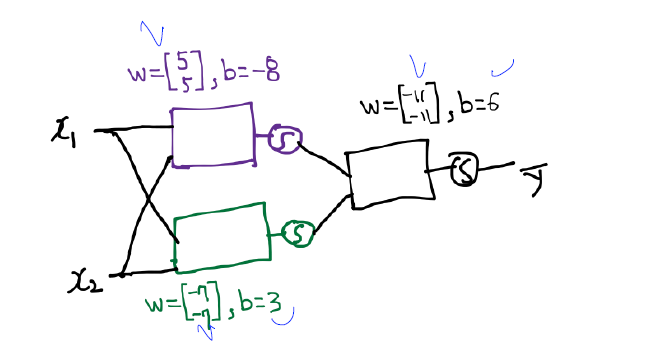 w=[5 5], b=-8
w=[-11 -11], b=6
x₁
S
S
ȳ
S
x₂
w=[-7 -7], b=3